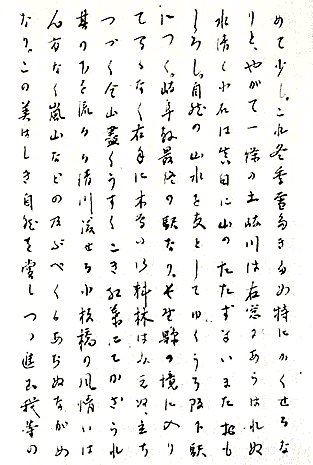 めて少し。これ冬季雪多き為め特にかくせるな
りと、やがて一條の土岐川は右窓にあらはれぬ
水清く小石は真白に山のたたずまいまた おも
しろし。自然の山水を友としてゆくうち坂下駅
につく。岐阜縣最終の駅なり。長野縣の境に入り
て間もなく右手に木曽の御料林はみえぬ、立ち
つづく全山盡くうすくこき紅葉にてかざられ
其の下を流るる清川渡せる小板橋の風情いは
ん方なく嵐山などの及ぶべくもあらぬながめ
なり。この美はしき自然を賞しつつ進む我等の